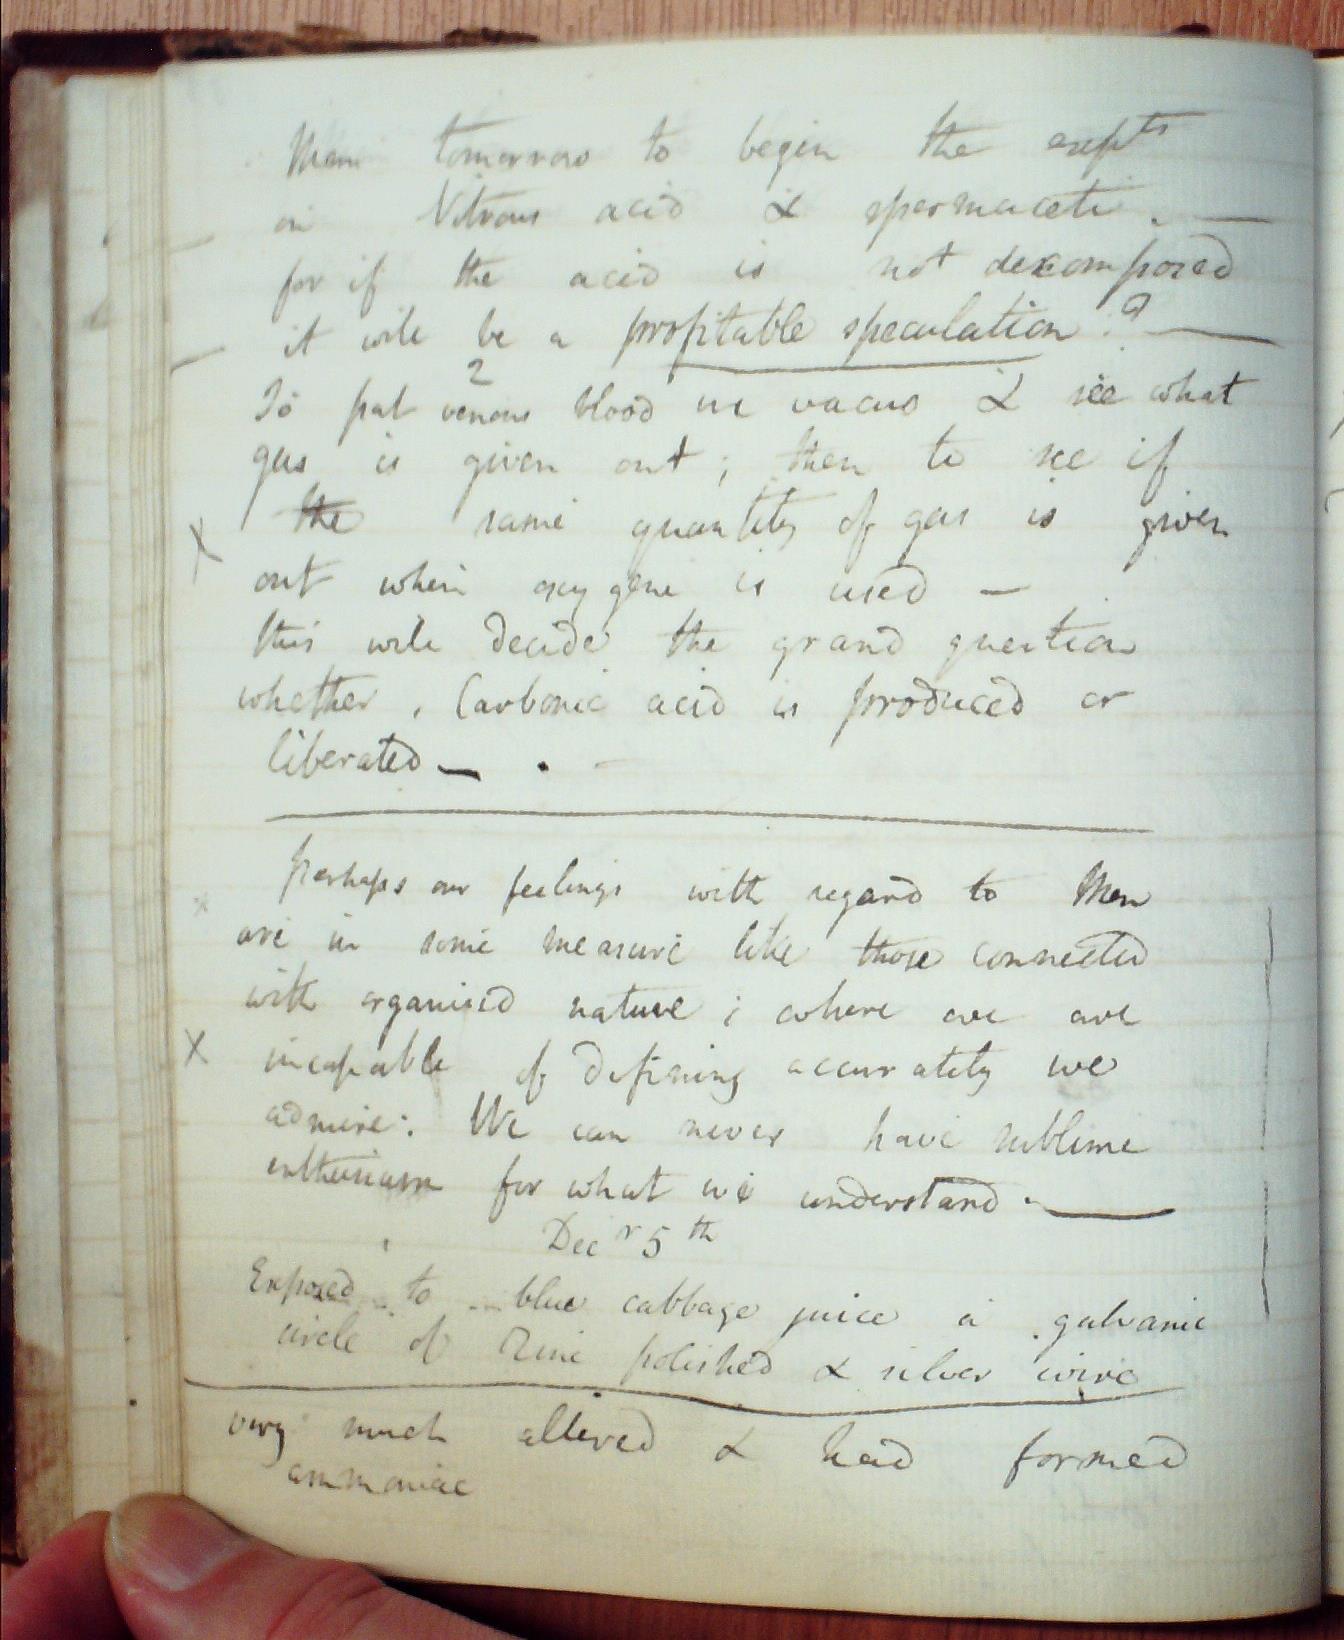 Mem tomorrow to begin the expts
on Nitrous acid & spermaceti. —
for if the acid is not decomposed
it will be a profitable speculation? —
To put 2 venous blood in vacuo & see what
gas is given out; then to see if
the same quantity of gas is given
out when oxygene is used —
this will decide the grand question
whether, Carbonic acid is produced or
liberated — . -
perhaps our feelings with regard to Men
are in some measure like those connected
with organised nature; where we are
incapable of defining accurately we
admire: We can never have sublime
enthusiasm for what we understand. —
Decr 5th
Exposed to blue cabbage juice a galvanic
circle of Zinc polished & silver wire
very much altered & had formed
ammoniac